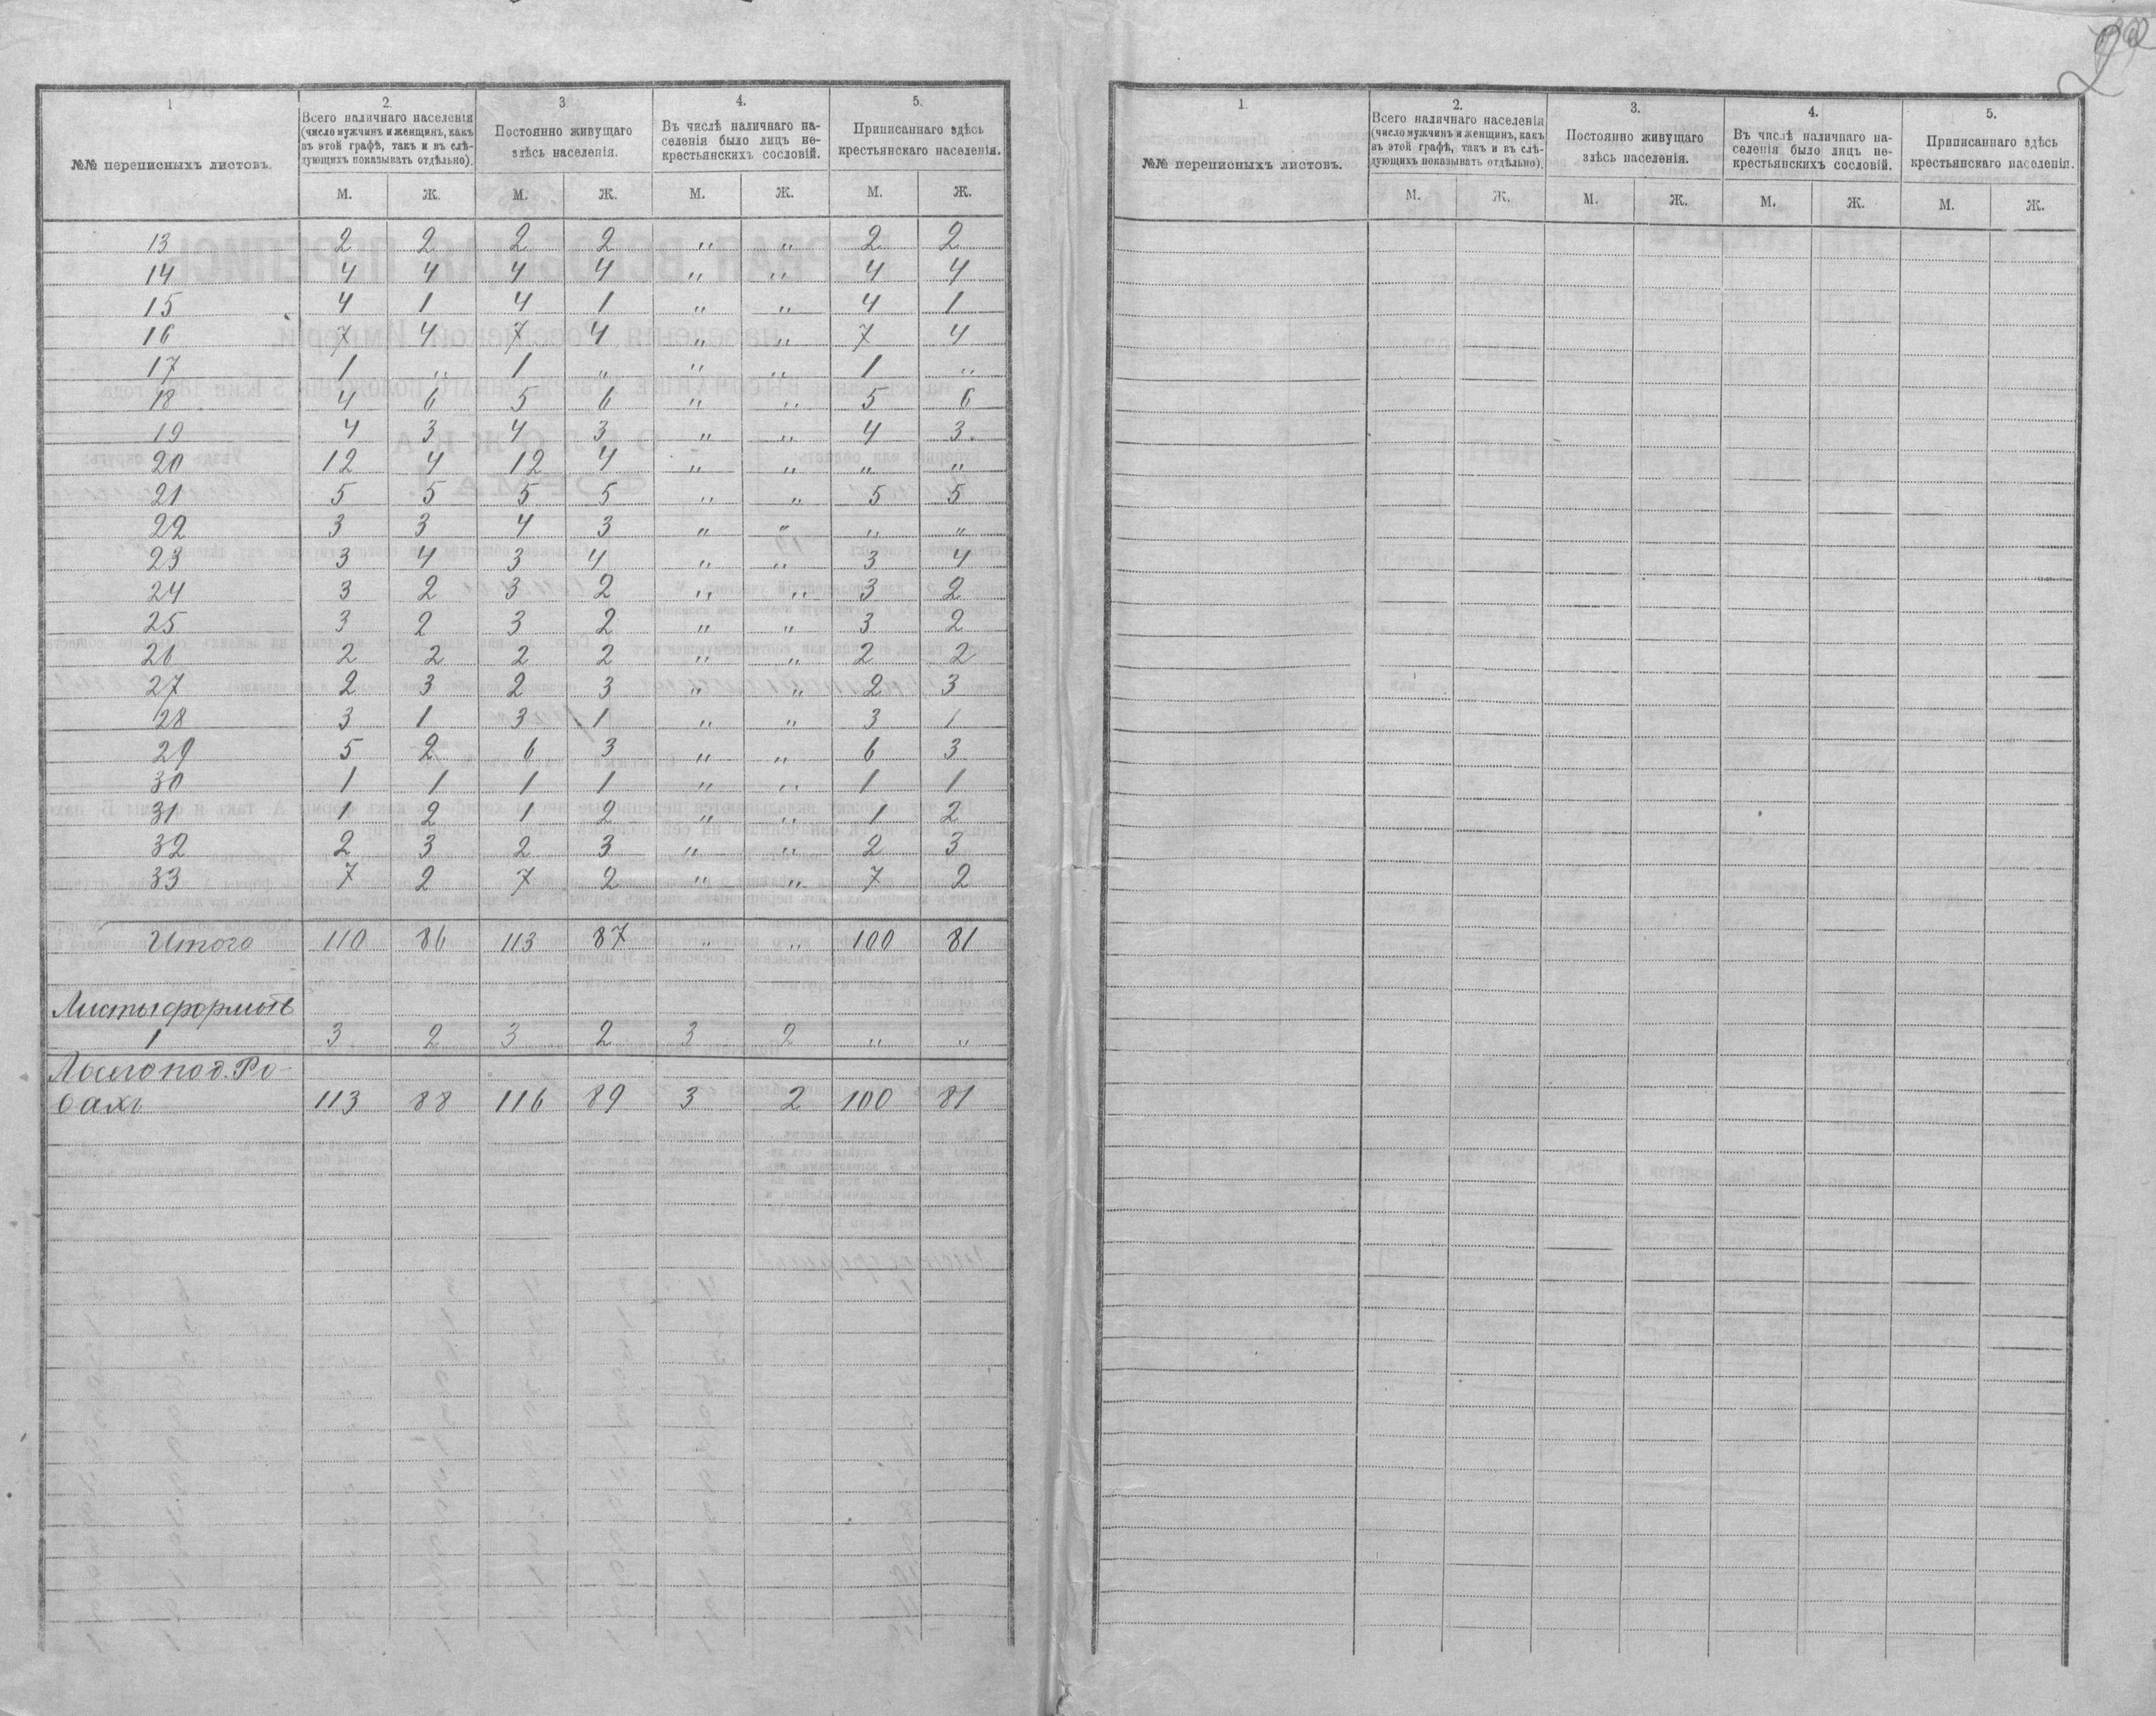 1
2.
3
4.
5.
№№ переписныхъ листовъ.
Всего наличнаго населенія
(число мужчинъ и женщинъ, какъ
въ этой графѣ, такъ и въ слѣ-
дующихъ показывать отдѣльно).
Постоянно живущаго
здѣсь населенія.
Въ числѣ наличнаго на-
селенія было лицъ не-
крестьянскихъ сословій.
Приписаннаго здѣсь
крестьянскаго населенія.
М. Ж. М. Ж. М. Ж. М. Ж.
13 2 2 2 2 „ „ 2 2
14 4 4 4 4 „ „ 4 4
15 4 1 4 1 „ „ 4 1
16 7 4 7 4 „ „ 7 4
17 1 „ 1 „ „ „ 1 „
18 4 6 5 6 „ „ 5 6
19 4 3 4 3 „ „ 4 3
20 12 4 12 4 „ „ „ „
21 5 5 5 5 „ „ 5 5
22 3 3 4 3 „ „ „ „
23 3 4 3 4 „ „ 3 4
24 3 2 3 2 „ „ 3 2
25 3 2 3 2 „ „ 3 2
26 2 2 2 2 „ „ 2 2
27 2 3 2 3 „ „ 2 3
28 3 1 3 1 „ „ 3 1
29 5 2 6 3 „ „ 6 3
30 1 1 1 1 „ „ 1 1
31 1 2 1 2 „ „ 1 2
32 2 3 2 3 „ „ 2 3
33 7 2 7 2 „ „ 7 2
Итого 110 86 113 87 „ „ 100 81
Листы формы
1 3 2 3 2 3 2 „ „
113 88 116 89 3 2 100 81
1.
2.
3.
4.
5.
№№ переписныхъ листовъ.
Всего наличнаго населенія
(число мужчинъ и женщинъ, какъ
въ этой графѣ, такъ и въ слѣ-
дующихъ показывать отдѣльно).
Постоянно живущаго
здѣсь населенія.
Въ числѣ наличнаго на-
селенія было лицъ не-
крестьянскихъ сословій.
Приписаннаго здѣсь
крестьянскаго населенія.
М. Ж. М. Ж. М. Ж. М. Ж.